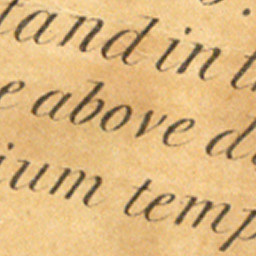 tand in t
e above d
ium temp